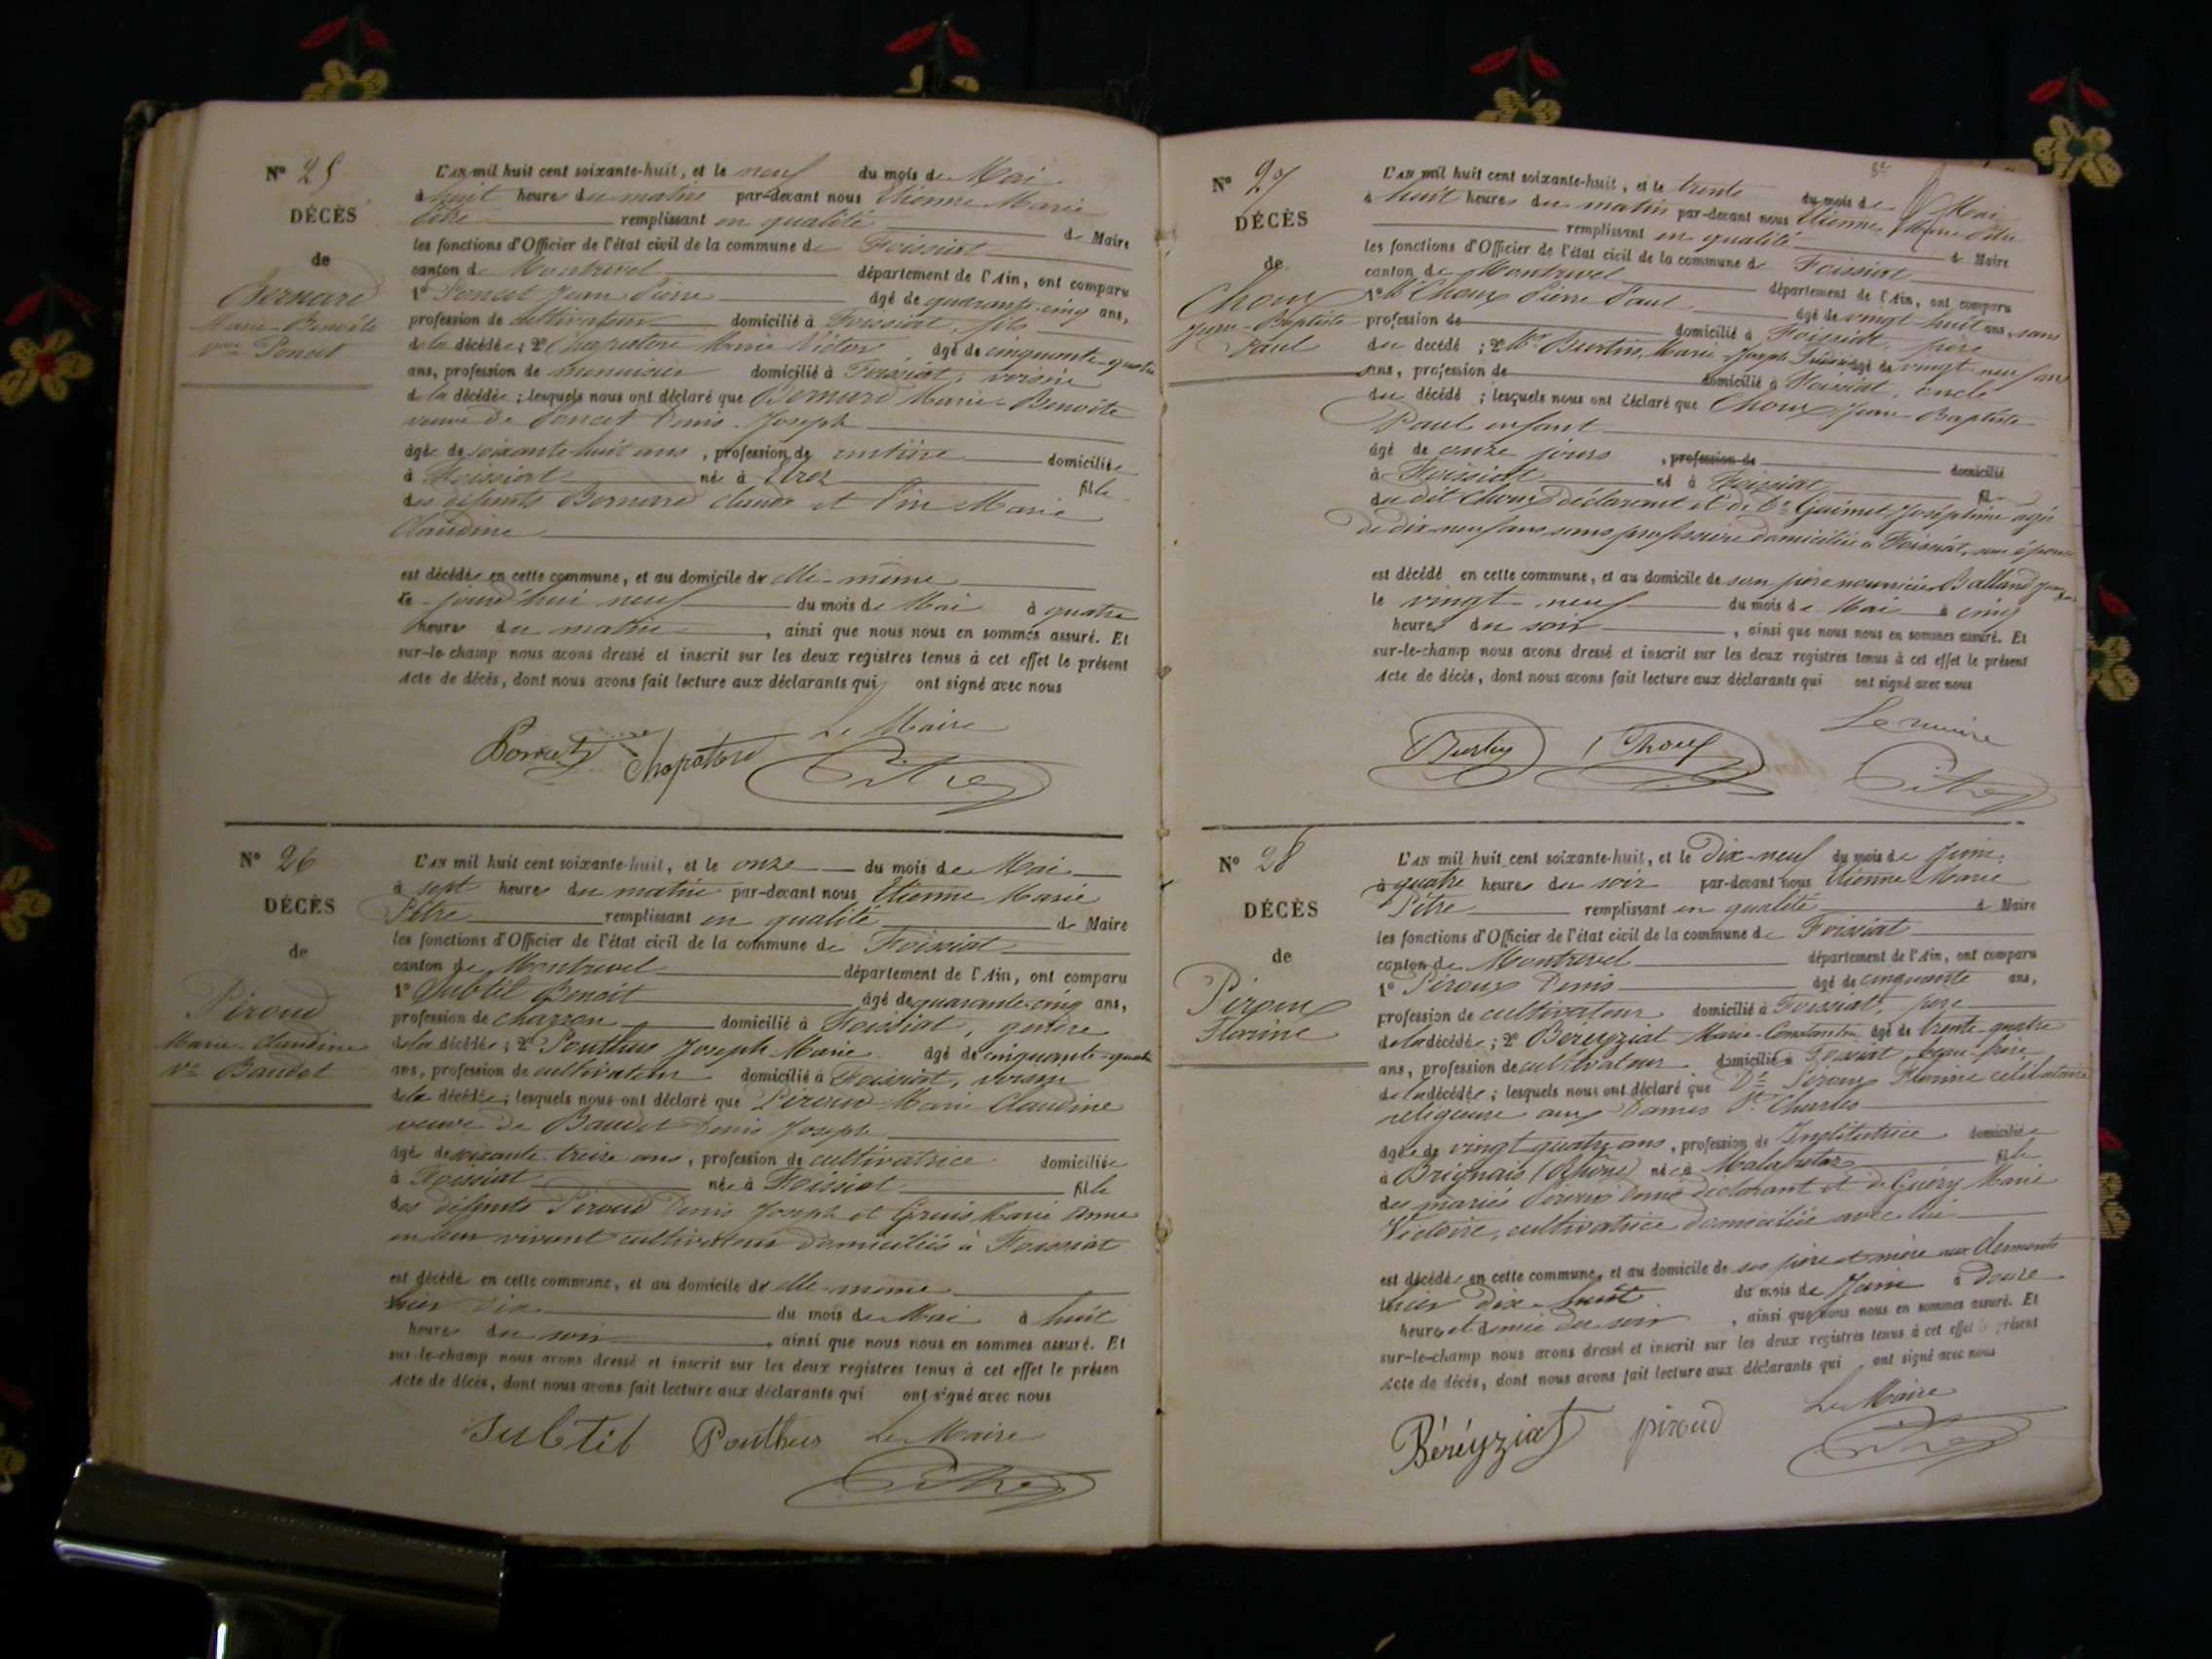 N° 25
DÉCÈS
de
Bernard
Marie-Benoîte
Vve Poncet
L'AN mil huit cent soixante-huit, et le neuf du mois de Mai
à huit heures du matin par-devant nous Etienne Marie
Pitre remplissant en qualité de Maire
les fonctions d'Officier de l'état civil de la commune de Foissiat
canton de Montrevel département de l'Ain, ont comparu
1° Poncet Jean Pierre âgé de quarante-cinq ans,
profession de cultivateur domicilié à Foissiat, fils
de la décédée; 2° Chapatore Marie Victor âgé de cinquante-quatre
ans, profession de menuisier domicilié à Foissiat, voisin
de la décédée; lesquels nous ont déclaré que Bernard Marie-Benoîte
veuve de Poncet Denis-Joseph
âgée de soixante-huit ans, profession de rentière domiciliée
à Foissiat née à Etrez fille
des défunts Bernard Claude et Pin Marie
Claudine
est décédée en cette commune, et au domicile de elle-même
le jourd'hui neuf du mois de Mai à quatre
heures du matin, ainsi que nous nous en sommes assuré. Et
sur-le-champ nous avons dressé et inscrit sur les deux registres tenus à cet effet le présent
Acte de décès, dont nous avons fait lecture aux déclarants qui ont signé avec nous
Le Maire
Poncet Chapatore Pitre
N° 26
DÉCÈS
de
Piroud
Marie-Claudine
Ve Baudet
L'AN mil huit cent soixante-huit, et le onze du mois de Mai
à sept heures du matin par-devant nous Etienne Marie
Pitre remplissant en qualité de Maire
les fonctions d'Officier de l'état civil de la commune de Foissiat
canton de Montrevel département de l'Ain, ont comparu
1° Subtil Benoit âgé de quarante-cinq ans,
profession de charron domicilié à Foissiat, gendre
de la décédée; 2° Pouthus Joseph Marie âgé de cinquante-quatre
ans, profession de cultivateur domicilié à Foissiat, voisin
de la décédée; lesquels nous ont déclaré que Piroud Marie Claudine
veuve de Baudet Denis Joseph
âgée de soixante treize ans, profession de cultivatrice domiciliée
à Foissiat née à Foissiat fille
des défunts Piroud Denis Joseph et Marie Anne
en leur vivant cultivateurs domiciliés à Foissiat
est décédée en cette commune, et au domicile de elle-même
hier dix du mois de Mai à huit
heures du soir, ainsi que nous nous en sommes assuré. Et
sur-le-champ nous avons dressé et inscrit sur les deux registres tenus à cet effet le présen
Acte de décès, dont nous avons fait lecture aux déclarants qui ont signé avec nous
Subtil Pouthus Le Maire
Pitre
N° 27
DÉCÈS
de
Choux
Jean-Baptiste
Paul
L'AN mil huit cent soixante-huit, et le trente du mois de Mai
à huit heures du matin par-devant nous Etienne Marie Pitre
remplissant en qualité de Maire
les fonctions d'Officier de l'état civil de la commune de Foissiat
canton de Montrevel département de l'Ain, ont comparu
1° Mr Choux Pierre Paul âgé de vingt-huit ans, sans
profession de domicilié à Foissiat, père
du décédé; 2° Mr Burtin, Marie-Joseph âgé de vingt-neuf ans
ans, profession de domicilié à Foissiat, oncle
du décédé; lesquels nous ont déclaré que Choux Jean-Baptiste
Paul enfant
âgé de onze jours, profession de domicilié
à Foissiat né à Foissiat fil
du dit Choux déclarant et de De Guimet Joséphine agée
de dix-neuf ans sans profession domiciliée à Foissiat, son épouse
est décédé en cette commune, et au domicile de son père nourricier Balland
le vingt-neuf du mois de Mai à cinq
heures du soir, ainsi que nous nous en sommes assuré. Et
sur-le-champ nous avons dressé et inscrit sur les deux registres tenus à cet effet le présent
Acte de décès, dont nous avons fait lecture aux déclarants qui ont signé avec nous
Le maire
Burtin Choux Pitre
N° 28
DÉCÈS
de
Piroux
Florine
L'AN mil huit cent soixante-huit, et le Dix-neuf du mois de Juin
à quatre heures du soir par-devant nous Etienne Marie
Pitre remplissant en qualité de Maire
les fonctions d'Officier de l'état civil de la commune de Foissiat
canton de Montrevel département de l'Ain, ont comparu
1° Piroux Denis âgé de cinquante ans,
profession de cultivateur domicilié à Foissiat, père
de la décédée; 2° Béréyziat Marie-Constantin âgé de trente-quatre
ans, profession de cultivateur domicilié à Foissiat, beau-frère
de la décédée; lesquels nous ont déclaré que Dlle Piroux Florine célibataire
religieuse aux Dames St Charles
âgée de vingt quatre ans, profession de Institutrice domiciliée
à Brignais (Rhône) née à Malafretaz fille
des mariés Piroux Denis déclarant et de Guéry Marie
Victoire, cultivatrice domiciliée avec lui
est décédée en cette commune, et au domicile de ses père et mère aux Clermonts
hier dix-huit du mois de Juin à Douze
heures et demie du soir, ainsi que nous nous en sommes assuré. Et
sur-le-champ nous avons dressé et inscrit sur les deux registres tenus à cet effet le présent
Acte de décès, dont nous avons fait lecture aux déclarants qui ont signé avec nous
Le Maire
Béréyziat piroud Pitre